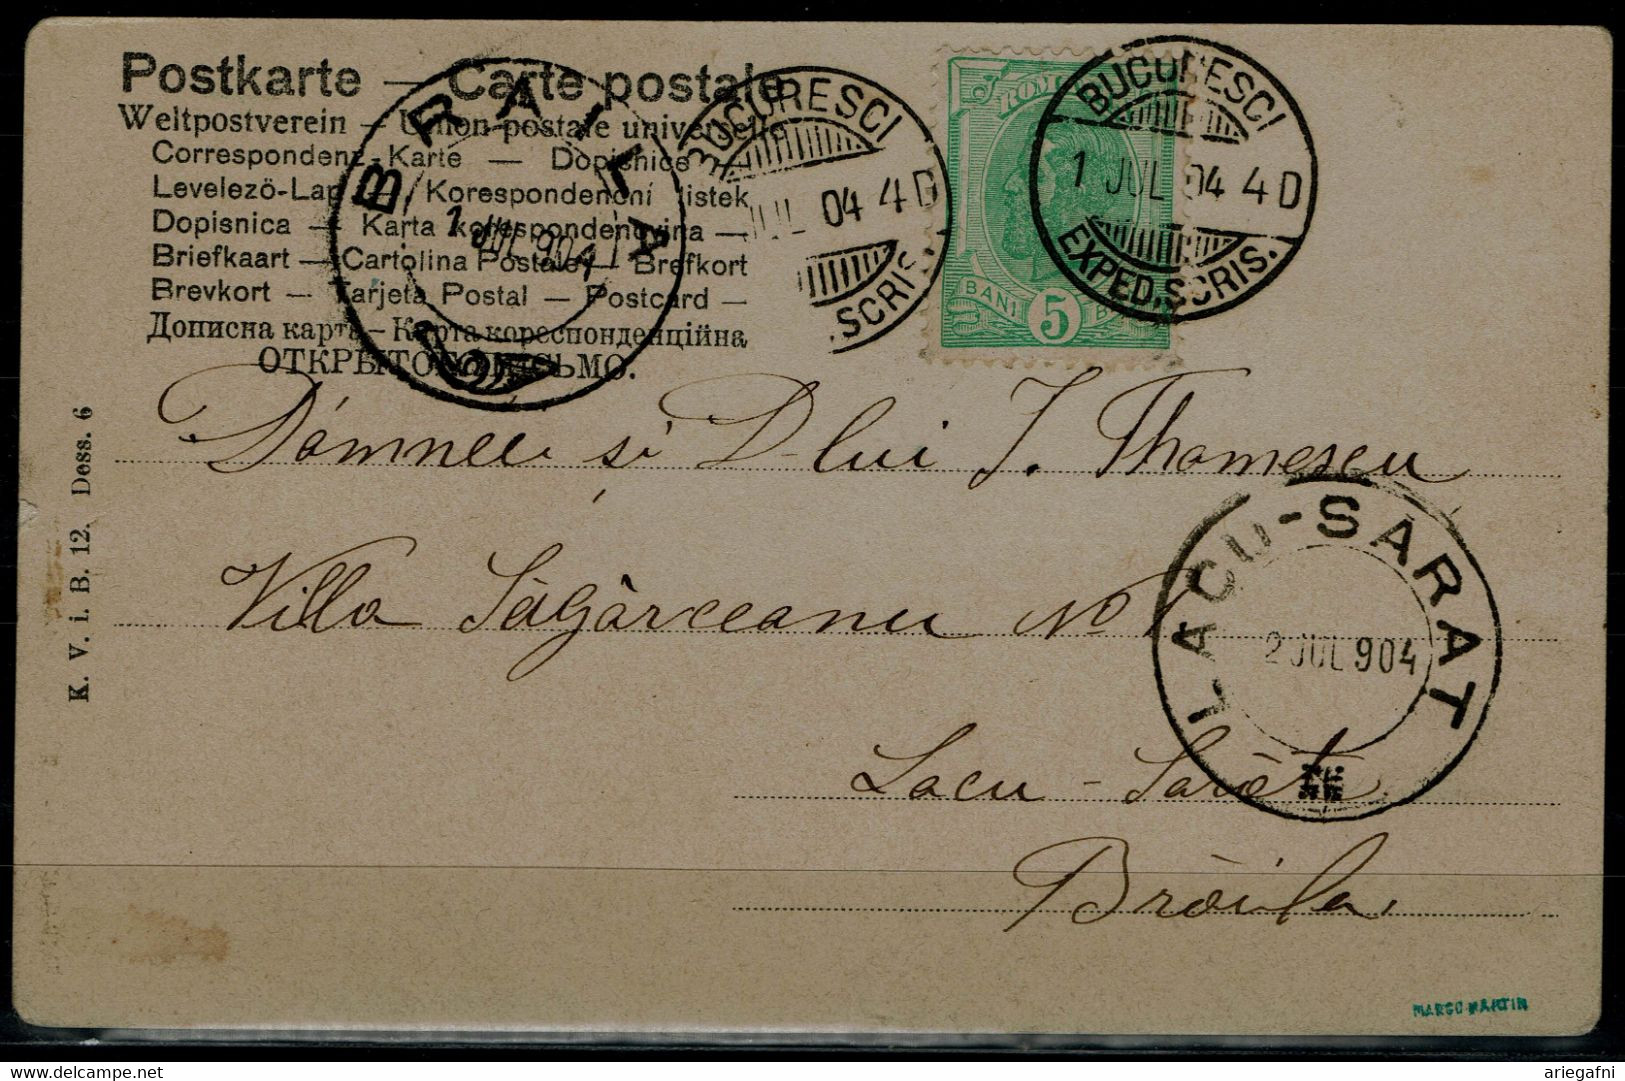 Postkarte — Carte postale
Weltpostverein – Union postale universelle
Correspondenz-Karte — Dopisnice —
Levelező-Lap — Korespondenční lístek
Dopisnica — Karta korespondencyjna —
Briefkaart — Cartolina Postale — Brefkort
Brevkort — Tarjeta Postal — Postcard —
Дописна карта – Карта кореспонденційна
ОТКРЫТОЕ ПИСЬМО.
BRAILA
1 JUL 904
BUCURESCI
JUL 04 4 D
.SCRIS.
ROM
BANI 5 B
BUCURESCI
1 JUL 04 4 D
EXPED.SCRIS.
K. V. i. B. 12. Dess. 6
Dómnei și D-lui J. Thomescu
Villa Săgărceanu No 1
LACU-SARAT
2 JUL 904
Lacu-Sărat
Brăila
MARCO MARTIN
delcampe.net
ariegafni